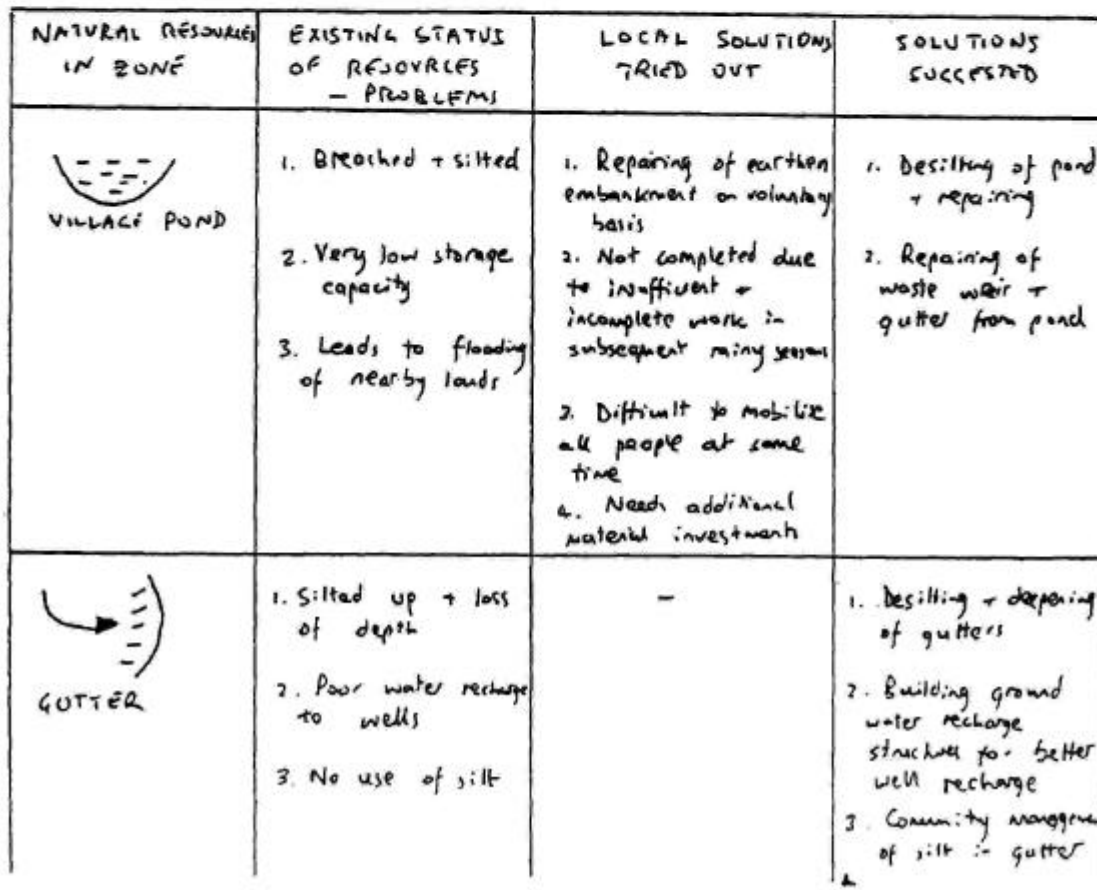 NATURAL RESOURCES
IN ZONE
EXISTING STATUS
OF RESOURCES
- PROBLEMS
LOCAL SOLUTIONS
TRIED OUT
SOLUTIONS
SUGGESTED
VILLAGE POND
1. Breached + silted
2. Very low storage
capacity
3. Leads to flooding
of nearby lands
1. Repairing of earthen
embankment on voluntary
basis
2. Not completed due
to insufficent +
incomplete work in
subsequent rainy seasons
3. Difficult to mobilize
all people at same
time
4. Needs additional
material investments
1. Desilting of pond
+ repairing
2. Repairing of
waste weir +
gutter from pond
GUTTER
1. Silted up + loss
of depth
2. Poor water recharge
to wells
3. No use of silt
-
1. Desilting + deepening
of gutters
2. Building ground
water recharge
structures for better
well recharge
3. Community
of silt in gutter